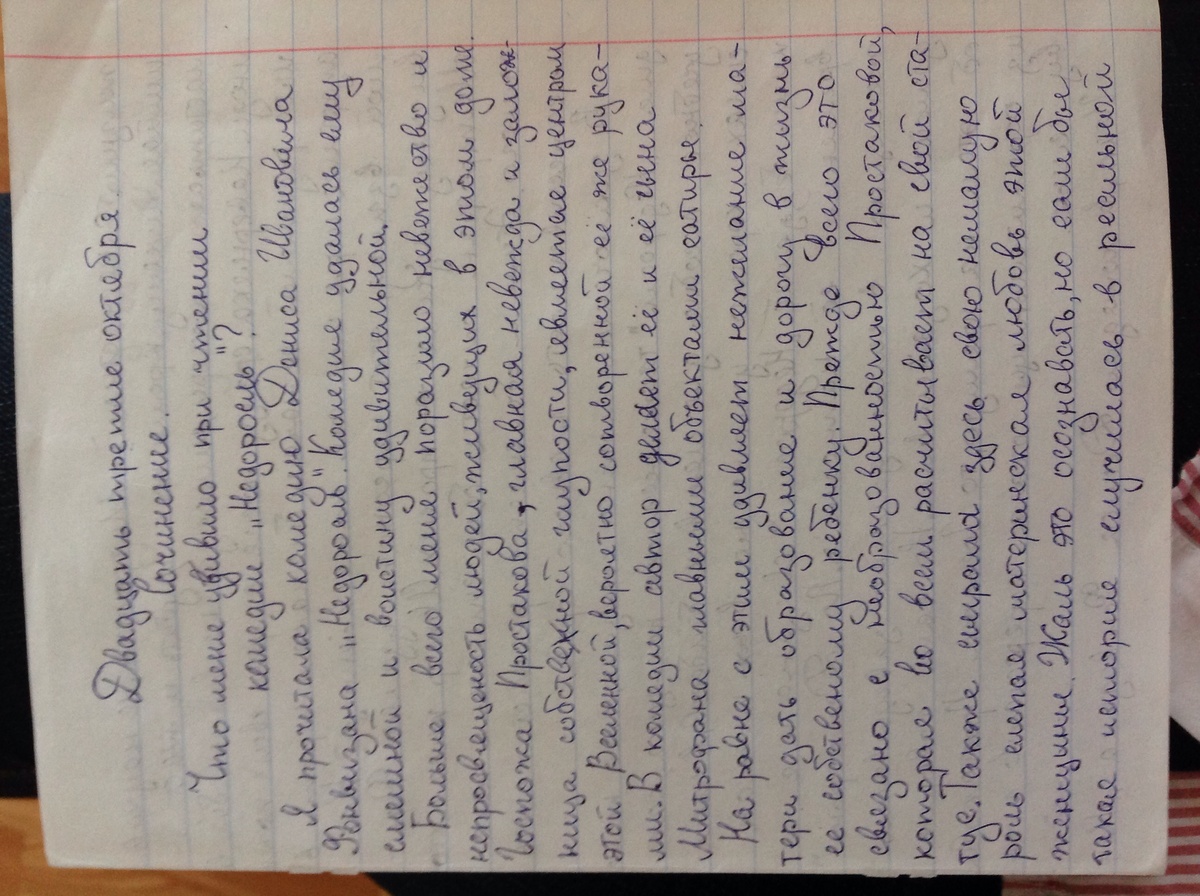 Двадцать третие октября.
Сочинение.
Что меня удивило при чтении
комедии „Недоросль"?
Я прочитала комедию Дениса Ивановича
Фонвизана „Недоросль". Комедия удалась ему
смешной и воистину удивительной.
Больше всего меня поразило невежество и
непросвещеность людей, живущих в этом доме.
Госпожа Простакова, главная невежда и залож-
ница собственной глупости, является центром
этой Вселенной, вероятно сотворенной её же рука-
ми. В комедии автор делает её и её сына
Митрофана главными объектами сатиры.
На равне с этим удивляет нежелание ма-
тери дать образование и дорогу в жизнь
ее собственному ребенку. Прежде всего это
связано с необразованностью Простаковой,
которая во всем расчитывает на свой ста-
тус. Также сыграла здесь свою немалую
роль слепая материнская любовь этой
женщины. Жаль это осознавать, но если бы
такая история случилась в реальной